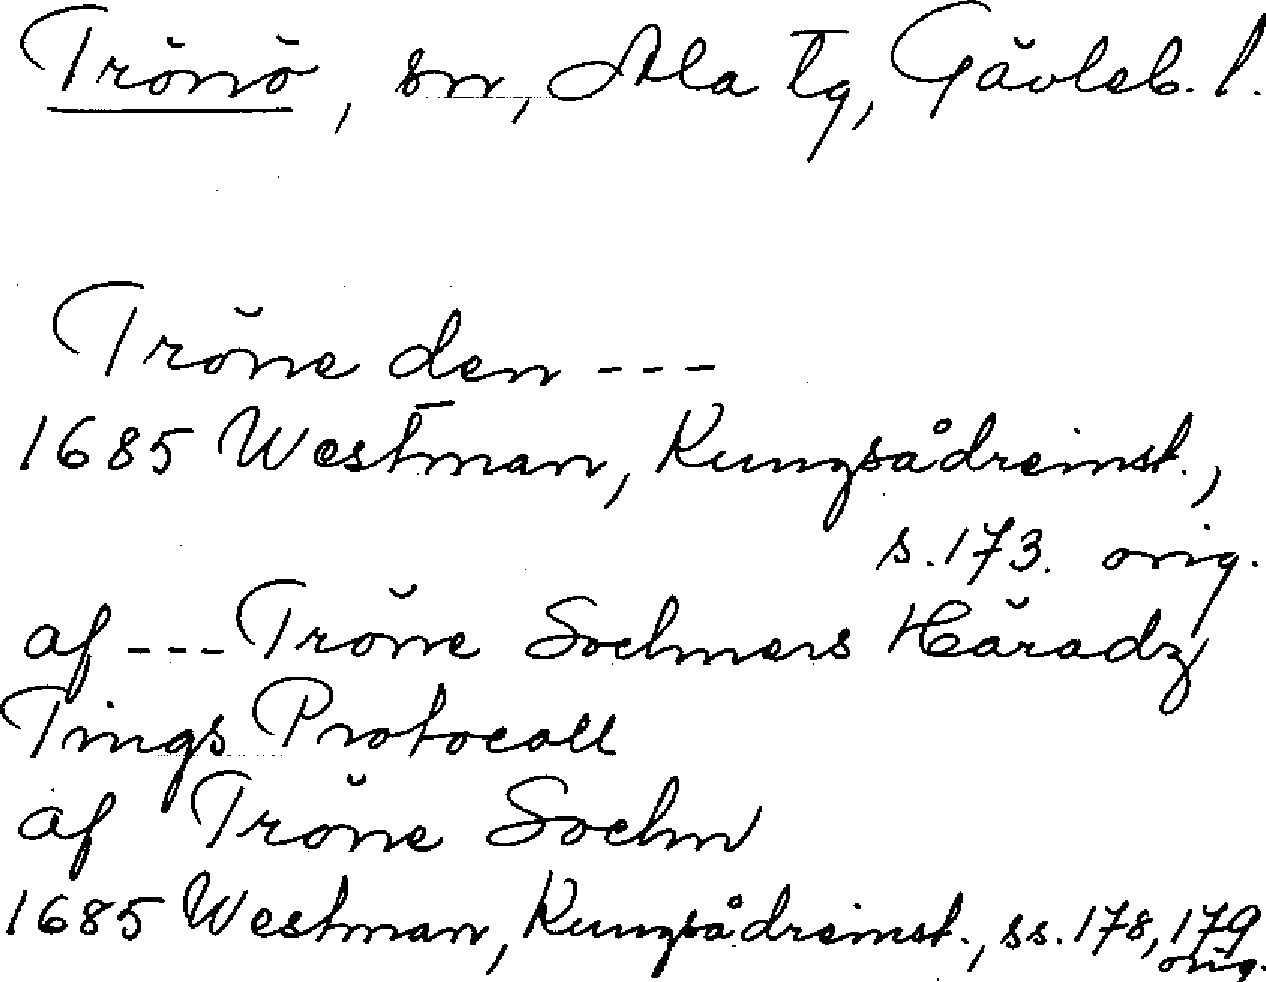 Trönö, sn, Ala tg, Gävleb. l.
Tröne den ---
1685 Westman, Kungsådreinst.,
s. 173. orig.
af --- Tröne Sochners Häradz
Tings Protocoll
af Tröne Sochn
1685 Westman, Kungsådreinst., ss. 178, 179
orig.